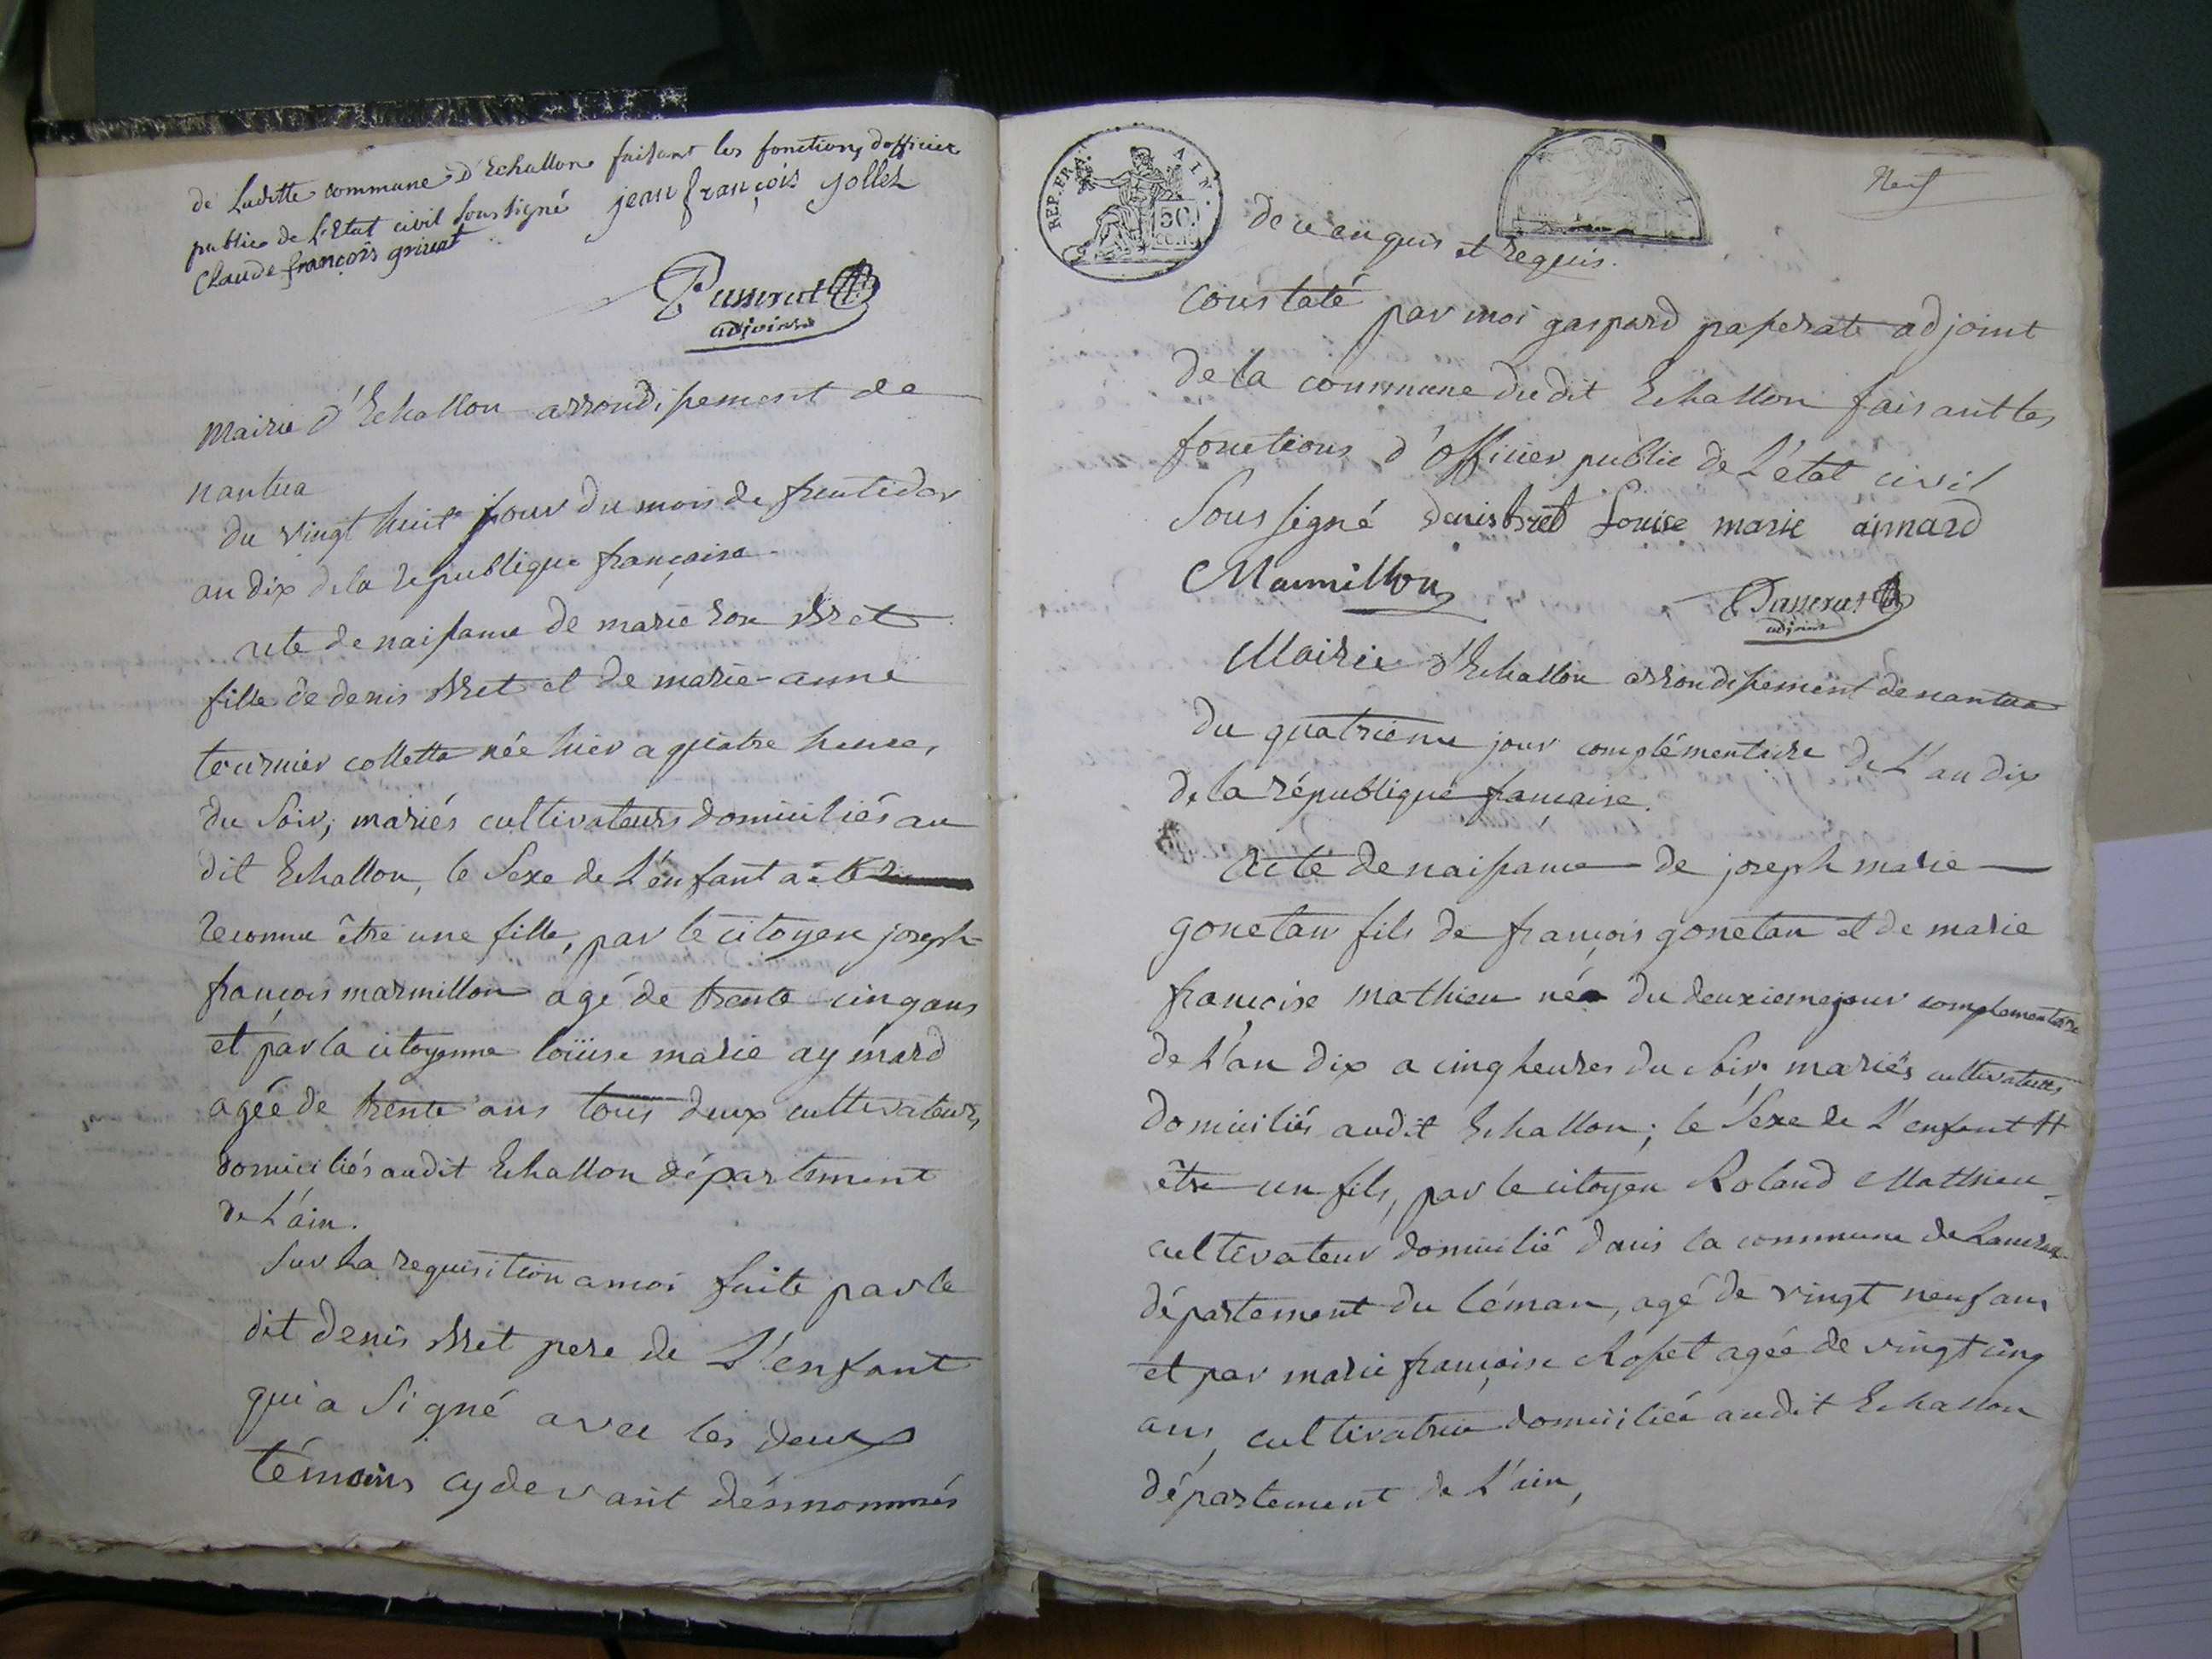 de Laditte commune D'Echallon faisant les fonctions dofficier
public de L'Etat civil soussigné jean françois jollet
Claude françois griuat
Passerat
adjoint
Mairie d'Echallon arrondissement de
nantua
du vingt huit jour du mois de fructidor
an dix de la republique française
acte de naissance de marie Bret
fille de denis Bret et de marie-anne
tournier collette née hier a quatre heures
du soir, mariés cultivateurs domiciliés au
dit Echallon, le Sexe de L'enfant a été
reconnu être une fille, par le citoyen joseph
françois marmillon agé de trente-cinq ans
et par la citoyenne loüise marie aymard
agée de trente ans tous deux cultivateurs
domiciliés audit Echallon département
de L'ain.
Sur La requisition a moi faite par le
dit denis Bret pere de L'enfant
qui a Signé avec les deux
témoins cy devant dénommés
REP. FRA. AIN.
50
Neuf
de ce enquis et requis.
Constaté par moi gaspard passerat adjoint
de la commune dudit Echallon faisant les
fonctions d'officier public de L'état civil
Sous signé denis bret Louise marie aimard
Marmillon
Passerat
adjoint
Mairie d'Echallon arrondissement de nantua
Du quatrieme jour complémentaire de L'an dix
de la république française.
Acte de naissance de joseph marie
gonetan fils de françois gonetan et de marie
françoise mathieu né du deuxieme jour complementaire
de L'an dix a cinq heures du soir, mariés cultivateurs
domiciliés audit Echallon; le Sexe de L'enfant #
être un fils, par le citoyen Roland Matthieu
cultivateur domicilié dans la commune de
département du léman, agé de vingt neuf ans
et par marie françoise Rosset agée de vingt cinq
ans, cultivatrice domiciliée audit Echallon
département de L'ain,